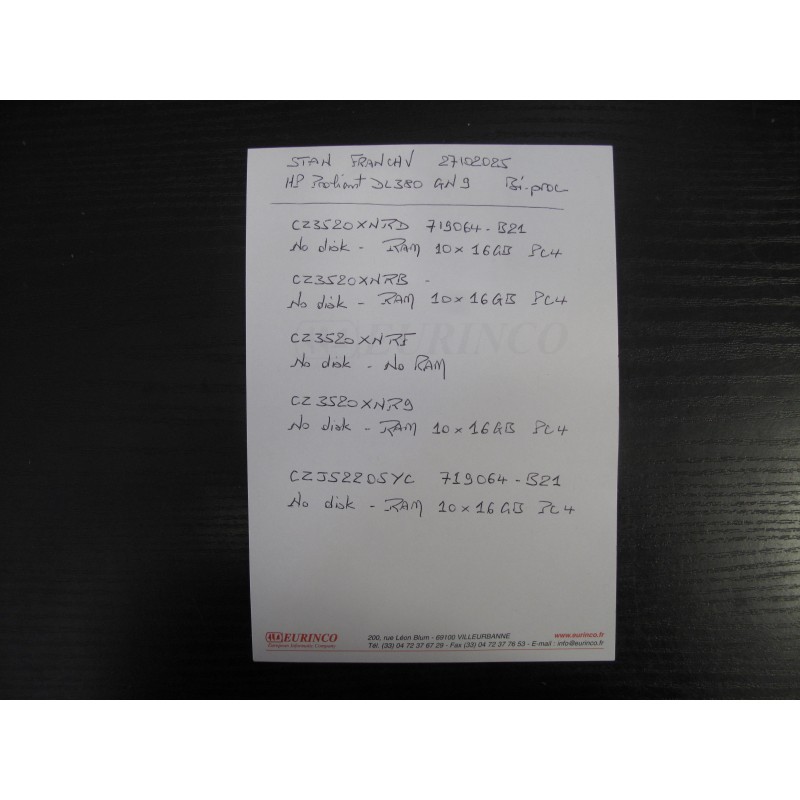 STAN FRANCHV 27102025
HP Proliant DL380 GN9 Bi-proc
CZ3520XNRD 719064-B21
No disk - RAM 10x16GB PC4
CZ3520XNRB -
No disk - RAM 10x16GB PC4
EURINCO
CZ3520XNRF
No disk - No RAM
CZ3520XNR9
No disk - RAM 10x16GB PC4
CZJ52205YC 719064-B21
No disk - RAM 10x16GB PC4
EURINCO
European Informatic Company
200, rue Léon Blum - 69100 VILLEURBANNE
Tél. (33) 04 72 37 67 29 - Fax (33) 04 72 37 76 53 - E-mail : info@eurinco.fr
www.eurinco.fr